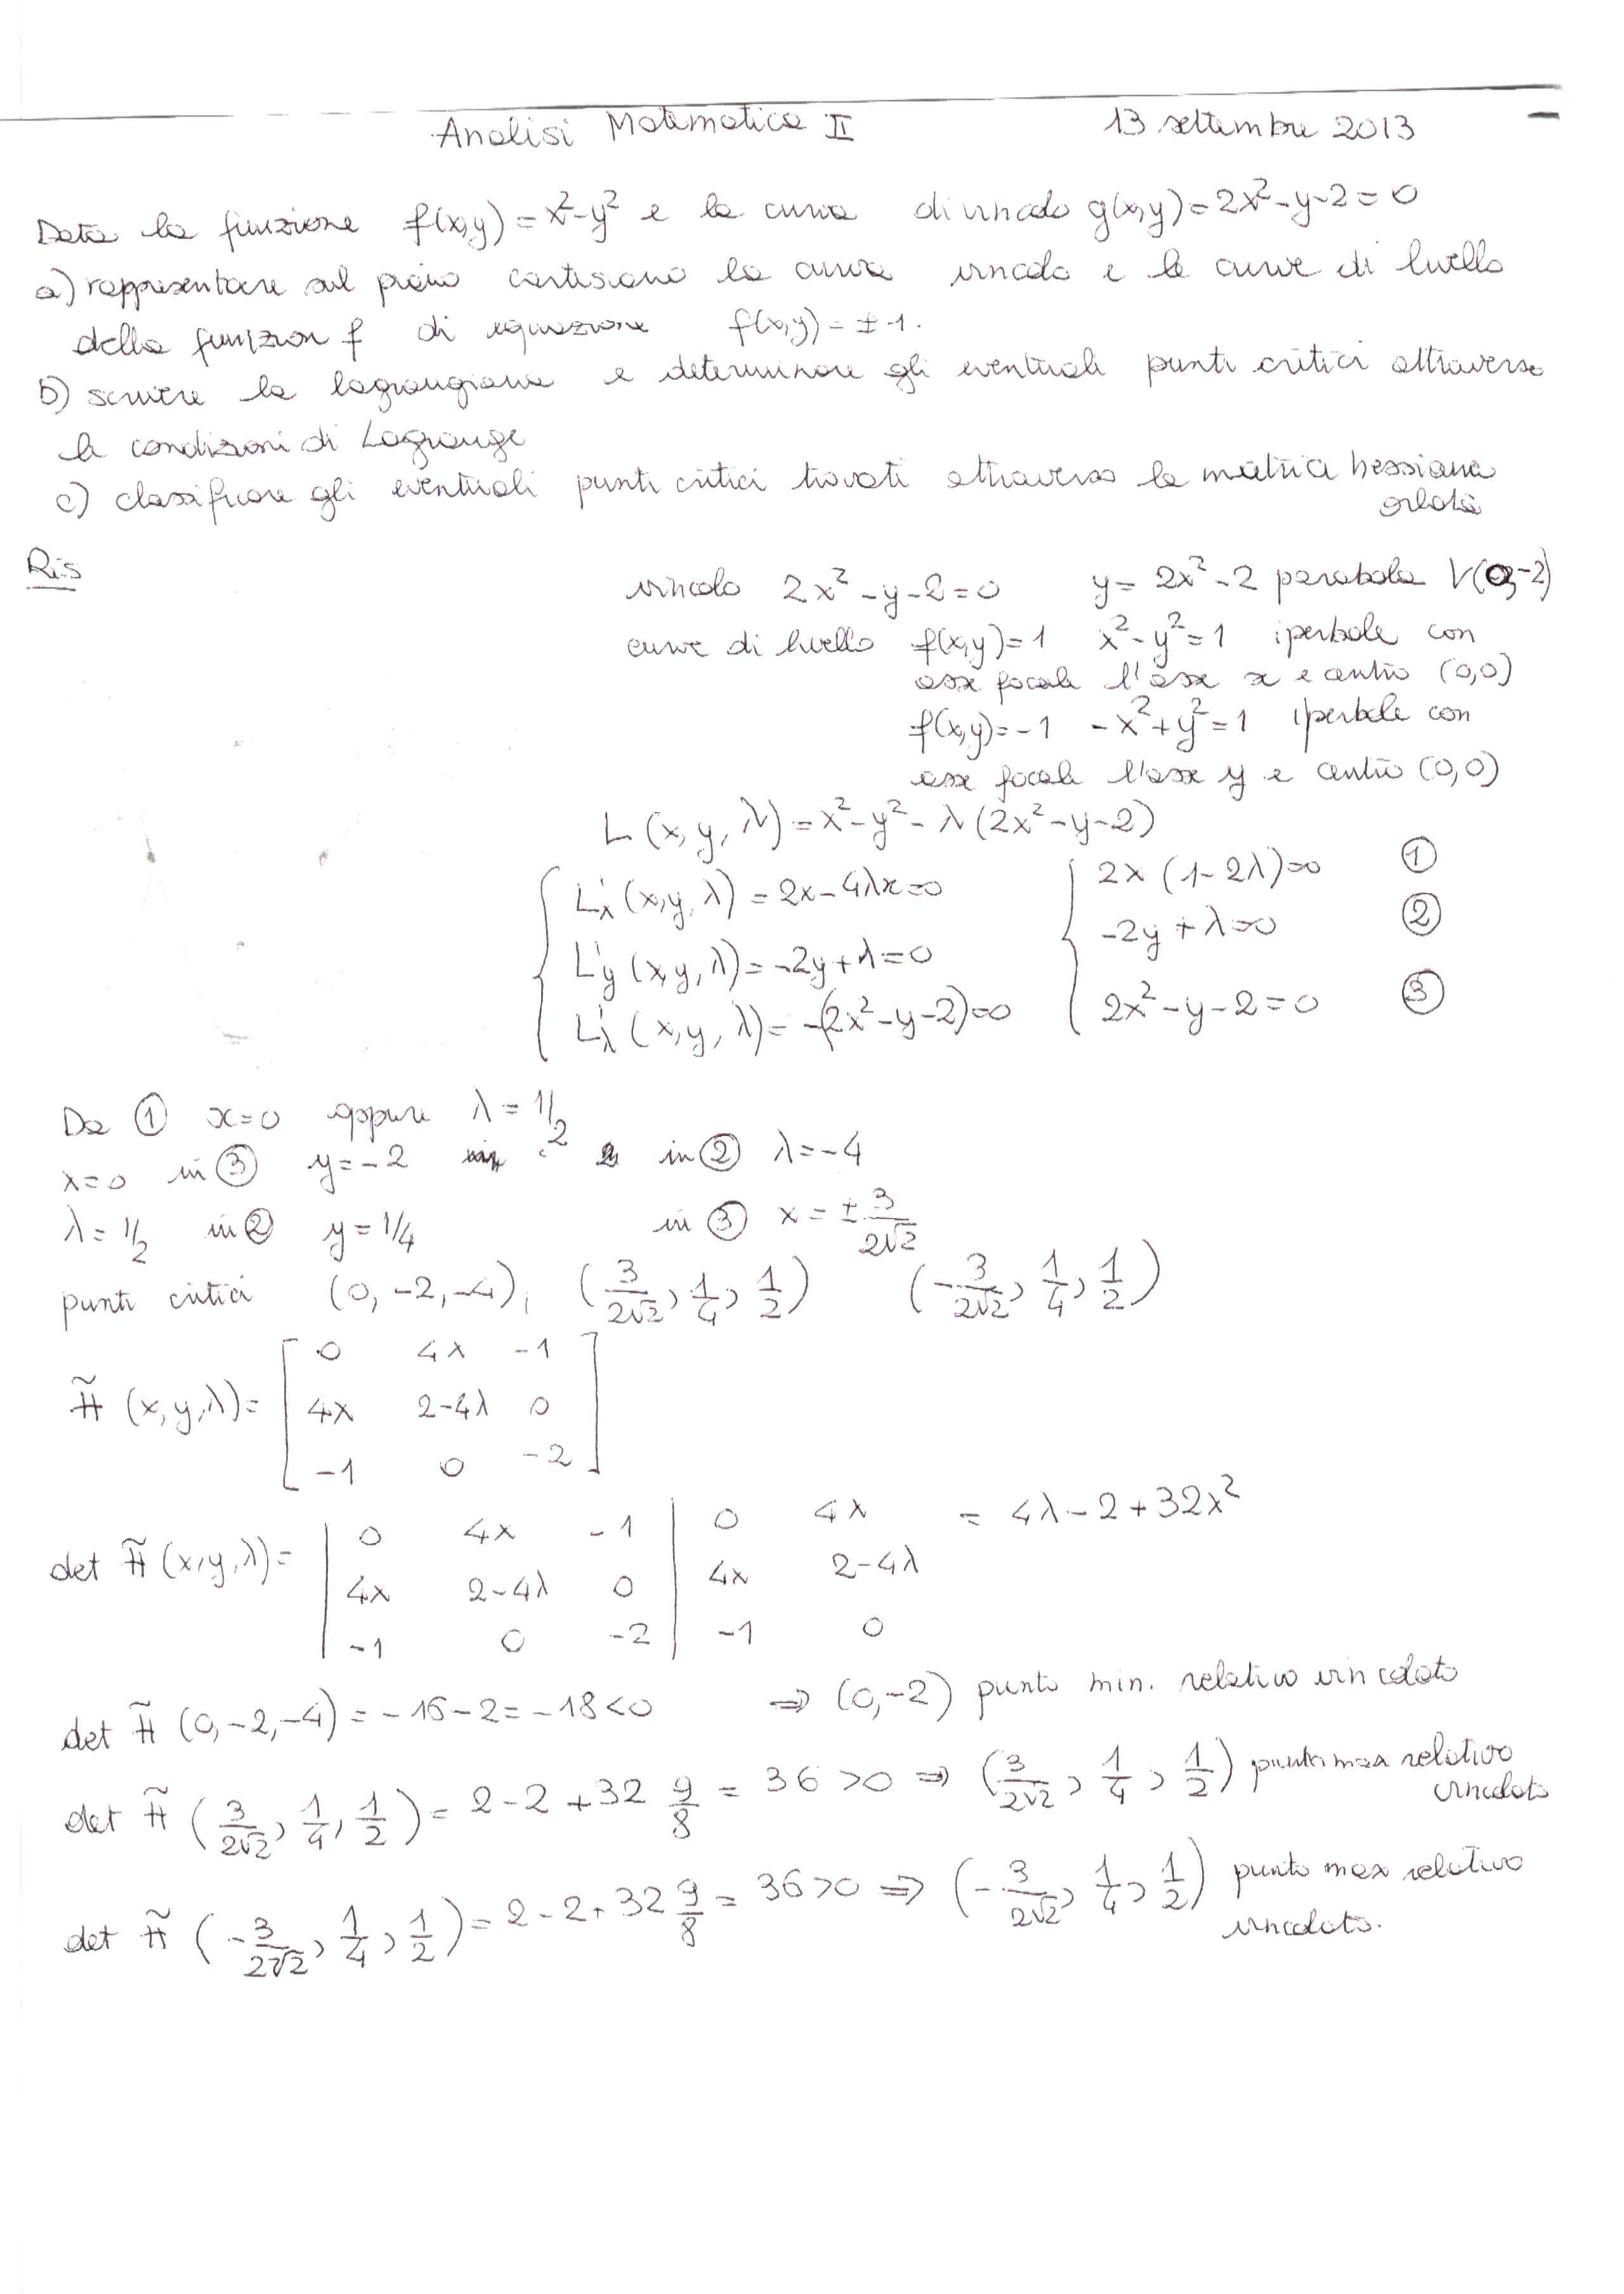 Analisi Matematica II 13 settembre 2013
Data la funzione f(x,y)=x²-y² e la curva di vincolo g(x,y)=2x²-y-2=0
a) rappresentare sul piano cartesiano la curva vincolo e le curve di livello
della funzion f di equazione f(x,y)=±1.
b) scrivere la lagrangiana e determinare gli eventuali punti critici attraverso
le condizioni di Lagrange
c) classificare gli eventuali punti critici trovati attraverso la matrice hessiana
orlata
Ris
vincolo 2x²-y-2=0 y=2x²-2 parabola V(0,-2)
curve di livello f(x,y)=1 x²-y²=1 iperbole con
asse focale l'asse x e centro (0,0)
f(x,y)=-1 -x²+y²=1 iperbole con
asse focale l'asse y e centro (0,0)
L(x,y,λ)=x²-y²-λ(2x²-y-2)
L'x(x,y,λ)=2x-4λx=0 2x(1-2λ)=0 ①
L'y(x,y,λ)=-2y+λ=0 -2y+λ=0 ②
L'λ(x,y,λ)=-(2x²-y-2)=0 2x²-y-2=0 ③
Da ① x=0 oppure λ=1/2
x=0 in ③ y=-2 in ② λ=-4
λ=1/2 in ② y=1/4 in ③ x=±3/(2√2)
punti critici (0,-2,-4), (3/(2√2), 1/4, 1/2) (-3/(2√2), 1/4, 1/2)
0 4x -1
H̃(x,y,λ)= 4x 2-4λ 0
-1 0 -2
0 4x -1 0 4x = 4λ-2+32x²
det H̃(x,y,λ)= 4x 2-4λ 0 4x 2-4λ
-1 0 -2 -1 0
det H̃(0,-2,-4)=-16-2=-18<0 ⇒ (0,-2) punto min. relativo vincolato
det H̃(3/(2√2), 1/4, 1/2)=2-2+32 9/8=36>0 ⇒ (3/(2√2), 1/4, 1/2) punto max relativo
vincolato
det H̃(-3/(2√2), 1/4, 1/2)=2-2+32 9/8=36>0 ⇒ (-3/(2√2), 1/4, 1/2) punto max relativo
vincolato.